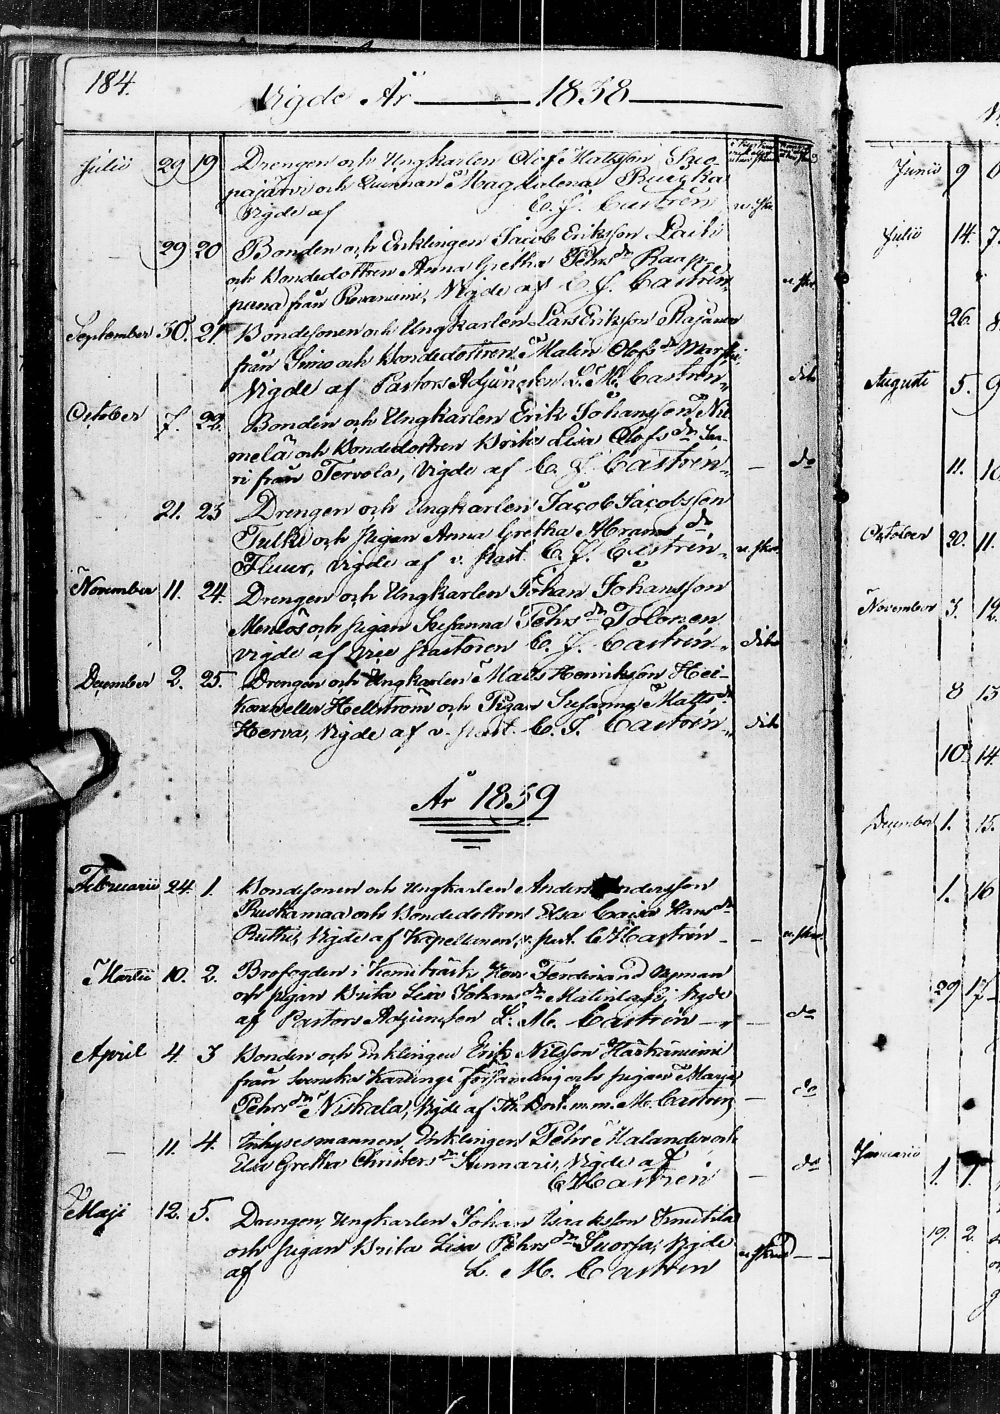 184.
Vigde År 1838
Julii 29 19 Drengen och Ungkarlen Olof Matsson Suo-
pajärvi och Qvinnan Magdalena
Vigde af C. J. Castrén u. sk.
29 20 Bonden och Enklingen Jacob Eriksson
och Bondedottren Anna Gretha Pehrs dr Raap-
pana från Rovaniemi, Vigde af C. J. Castrén
September 30. 21 Bondesonen och Ungkarlen Lars Eriksson
från Simo och Bondedottren Malin Olofs dr
Vigde af Pastors Adjuncten L. M. Castrén dito
October 7. 22. Bonden och Ungkarlen Erik Johansson Ni-
melä och Bondedottren Brita Lisa Olofs dr Saa-
ri från Tervola, Vigde af C. J. Castrén — do
21. 23 Drengen och Ungkarlen Jacob Jacobsson
Tulki och Pigan Anna Gretha Abrams dr
Fluur, Vigde af v. Past. C. J. Castrén
November 11. 24. Drengen och Ungkarlen Johan Johansson
Menlös och Pigan Susanna Pehrs dr Tolonen
vigde af Vice Pastoren C. J. Castrén dito
December 2. 25. Drengen och Ungkarlen Mats Henriksson Hei-
eller Hellström och Pigan Susanna Matts dr
Herva, Vigde af v. Past. C. J. Castrén dito
År 1839
Februarii 24. 1. Bondesonen och Ungkarlen Anders Andersson
Ruskamaa och Bondedottren Elsa Caisa Hans dr
Ruthi, Vigde af Kapellanen, v. Past. C J Castrén —
Martii 10. 2. Brofogden i Kemiträsk Herr Ferdinand
och Pigan Brita Lisa Johans dr Matinlassi, Vigde
af Pastors Adjuncten L. M. Castrén — do
April 4. 3 Bonden och Enklingen Erik Nilsson Härkäniemi
från Svenska Karlunge församling och Pigan Maria
Pehrs dr Niskala, Vigde af Th. Doct. m. m. M. Castrén — do
11. 4. Inhysesmannen, Enklingen Pehr Halander och
Elsa Gretha Christers dr Sunnari, Vigde af
C J Castrén — do
Maji 12. 5. Drengen, Ungkarlen Johan Isaksson
och Pigan Brita Lisa Pehrs dr Suorsa, Vigde
af L. M. Castrén
Junii 9
Julii 14. 7.
26. 8.
Augusti 5. 9
11. 10
October 20. 11.
November 3. 12.
8 13
10. 14.
December 1. 15.
1. 16
29 17
Januarii 1. 1.
19. 2.